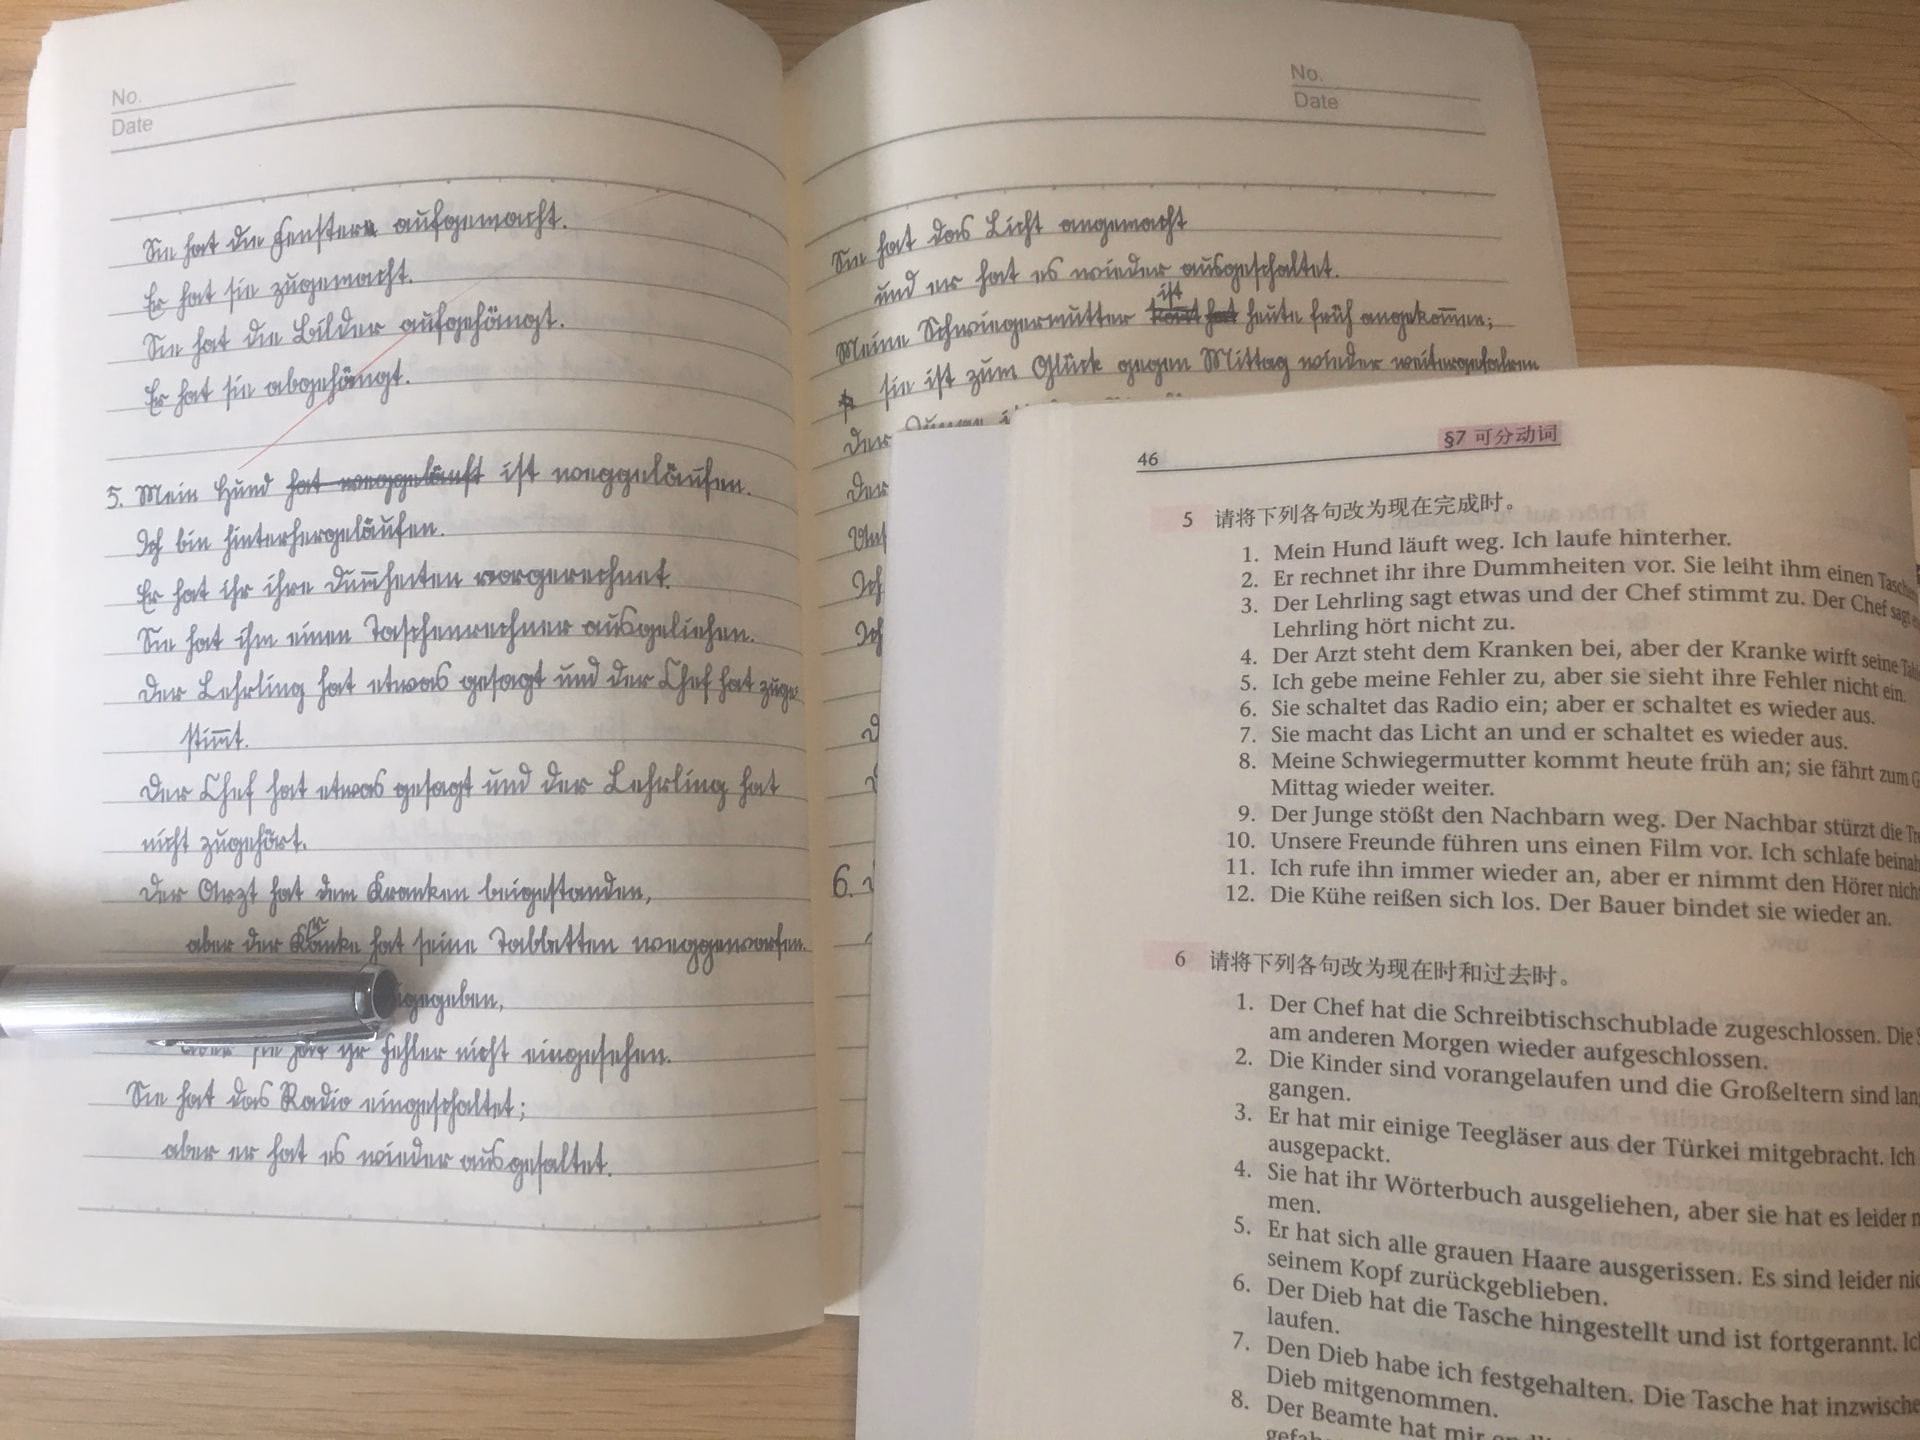 No.
Date
Sie hat die Fenster aufgemacht.
Er hat sie zugemacht.
Sie hat die Bilder aufgehängt.
Er hat sie abgehängt.
5. Mein Hund hat weggeläuft ist weggeläufen.
Ich bin hinterhergeläufen.
Er hat ihr ihre Dum̅heiten vorgerechnet.
Sie hat ihm einen Taschenrechner ausgeliehen.
Der Lehrling hat etwas gesagt und der Chef hat zuge-
stim̅t.
Der Chef hat etwas gesagt und der Lehrling hat
nicht zugehört.
Der Arzt hat dem Kranken beigestanden,
aber der Kranke hat seine Tabletten weggeworfen.
gegeben,
aber sie hat ihr Fehler nicht eingesehen.
Sie hat das Radio eingeschaltet;
aber er hat es wieder ausgesaltet.
No.
Date
Sie hat das Licht angemacht
und er hat es wieder ausgeschaltet.
Meine Schwiegermutter ist heute früh angekom̅en;
sie ist zum Glück gegen Mittag wieder weitergefahren
Der
Der
Uns
Ich
Ich
6.
46
§7 可分动词
5 请将下列各句改为现在完成时。
1. Mein Hund läuft weg. Ich laufe hinterher.
2. Er rechnet ihr ihre Dummheiten vor. Sie leiht ihm einen
3. Der Lehrling sagt etwas und der Chef stimmt zu. Der Chef sagt
Lehrling hört nicht zu.
4. Der Arzt steht dem Kranken bei, aber der Kranke wirft seine
5. Ich gebe meine Fehler zu, aber sie sieht ihre Fehler nicht ein.
6. Sie schaltet das Radio ein; aber er schaltet es wieder aus.
7. Sie macht das Licht an und er schaltet es wieder aus.
8. Meine Schwiegermutter kommt heute früh an; sie fährt zum
Mittag wieder weiter.
9. Der Junge stößt den Nachbarn weg. Der Nachbar stürzt die
10. Unsere Freunde führen uns einen Film vor. Ich schlafe
11. Ich rufe ihn immer wieder an, aber er nimmt den Hörer
12. Die Kühe reißen sich los. Der Bauer bindet sie wieder an.
6 请将下列各句改为现在时和过去时。
1. Der Chef hat die Schreibtischschublade zugeschlossen. Die
am anderen Morgen wieder aufgeschlossen.
2. Die Kinder sind vorangelaufen und die Großeltern sind
gangen.
3. Er hat mir einige Teegläser aus der Türkei mitgebracht. Ich
ausgepackt.
4. Sie hat ihr Wörterbuch ausgeliehen, aber sie hat es leider
men.
5. Er hat sich alle grauen Haare ausgerissen. Es sind leider
seinem Kopf zurückgeblieben.
6. Der Dieb hat die Tasche hingestellt und ist fortgerannt.
laufen.
7. Den Dieb habe ich festgehalten. Die Tasche hat
Dieb mitgenommen.
8. Der Beamte hat mir